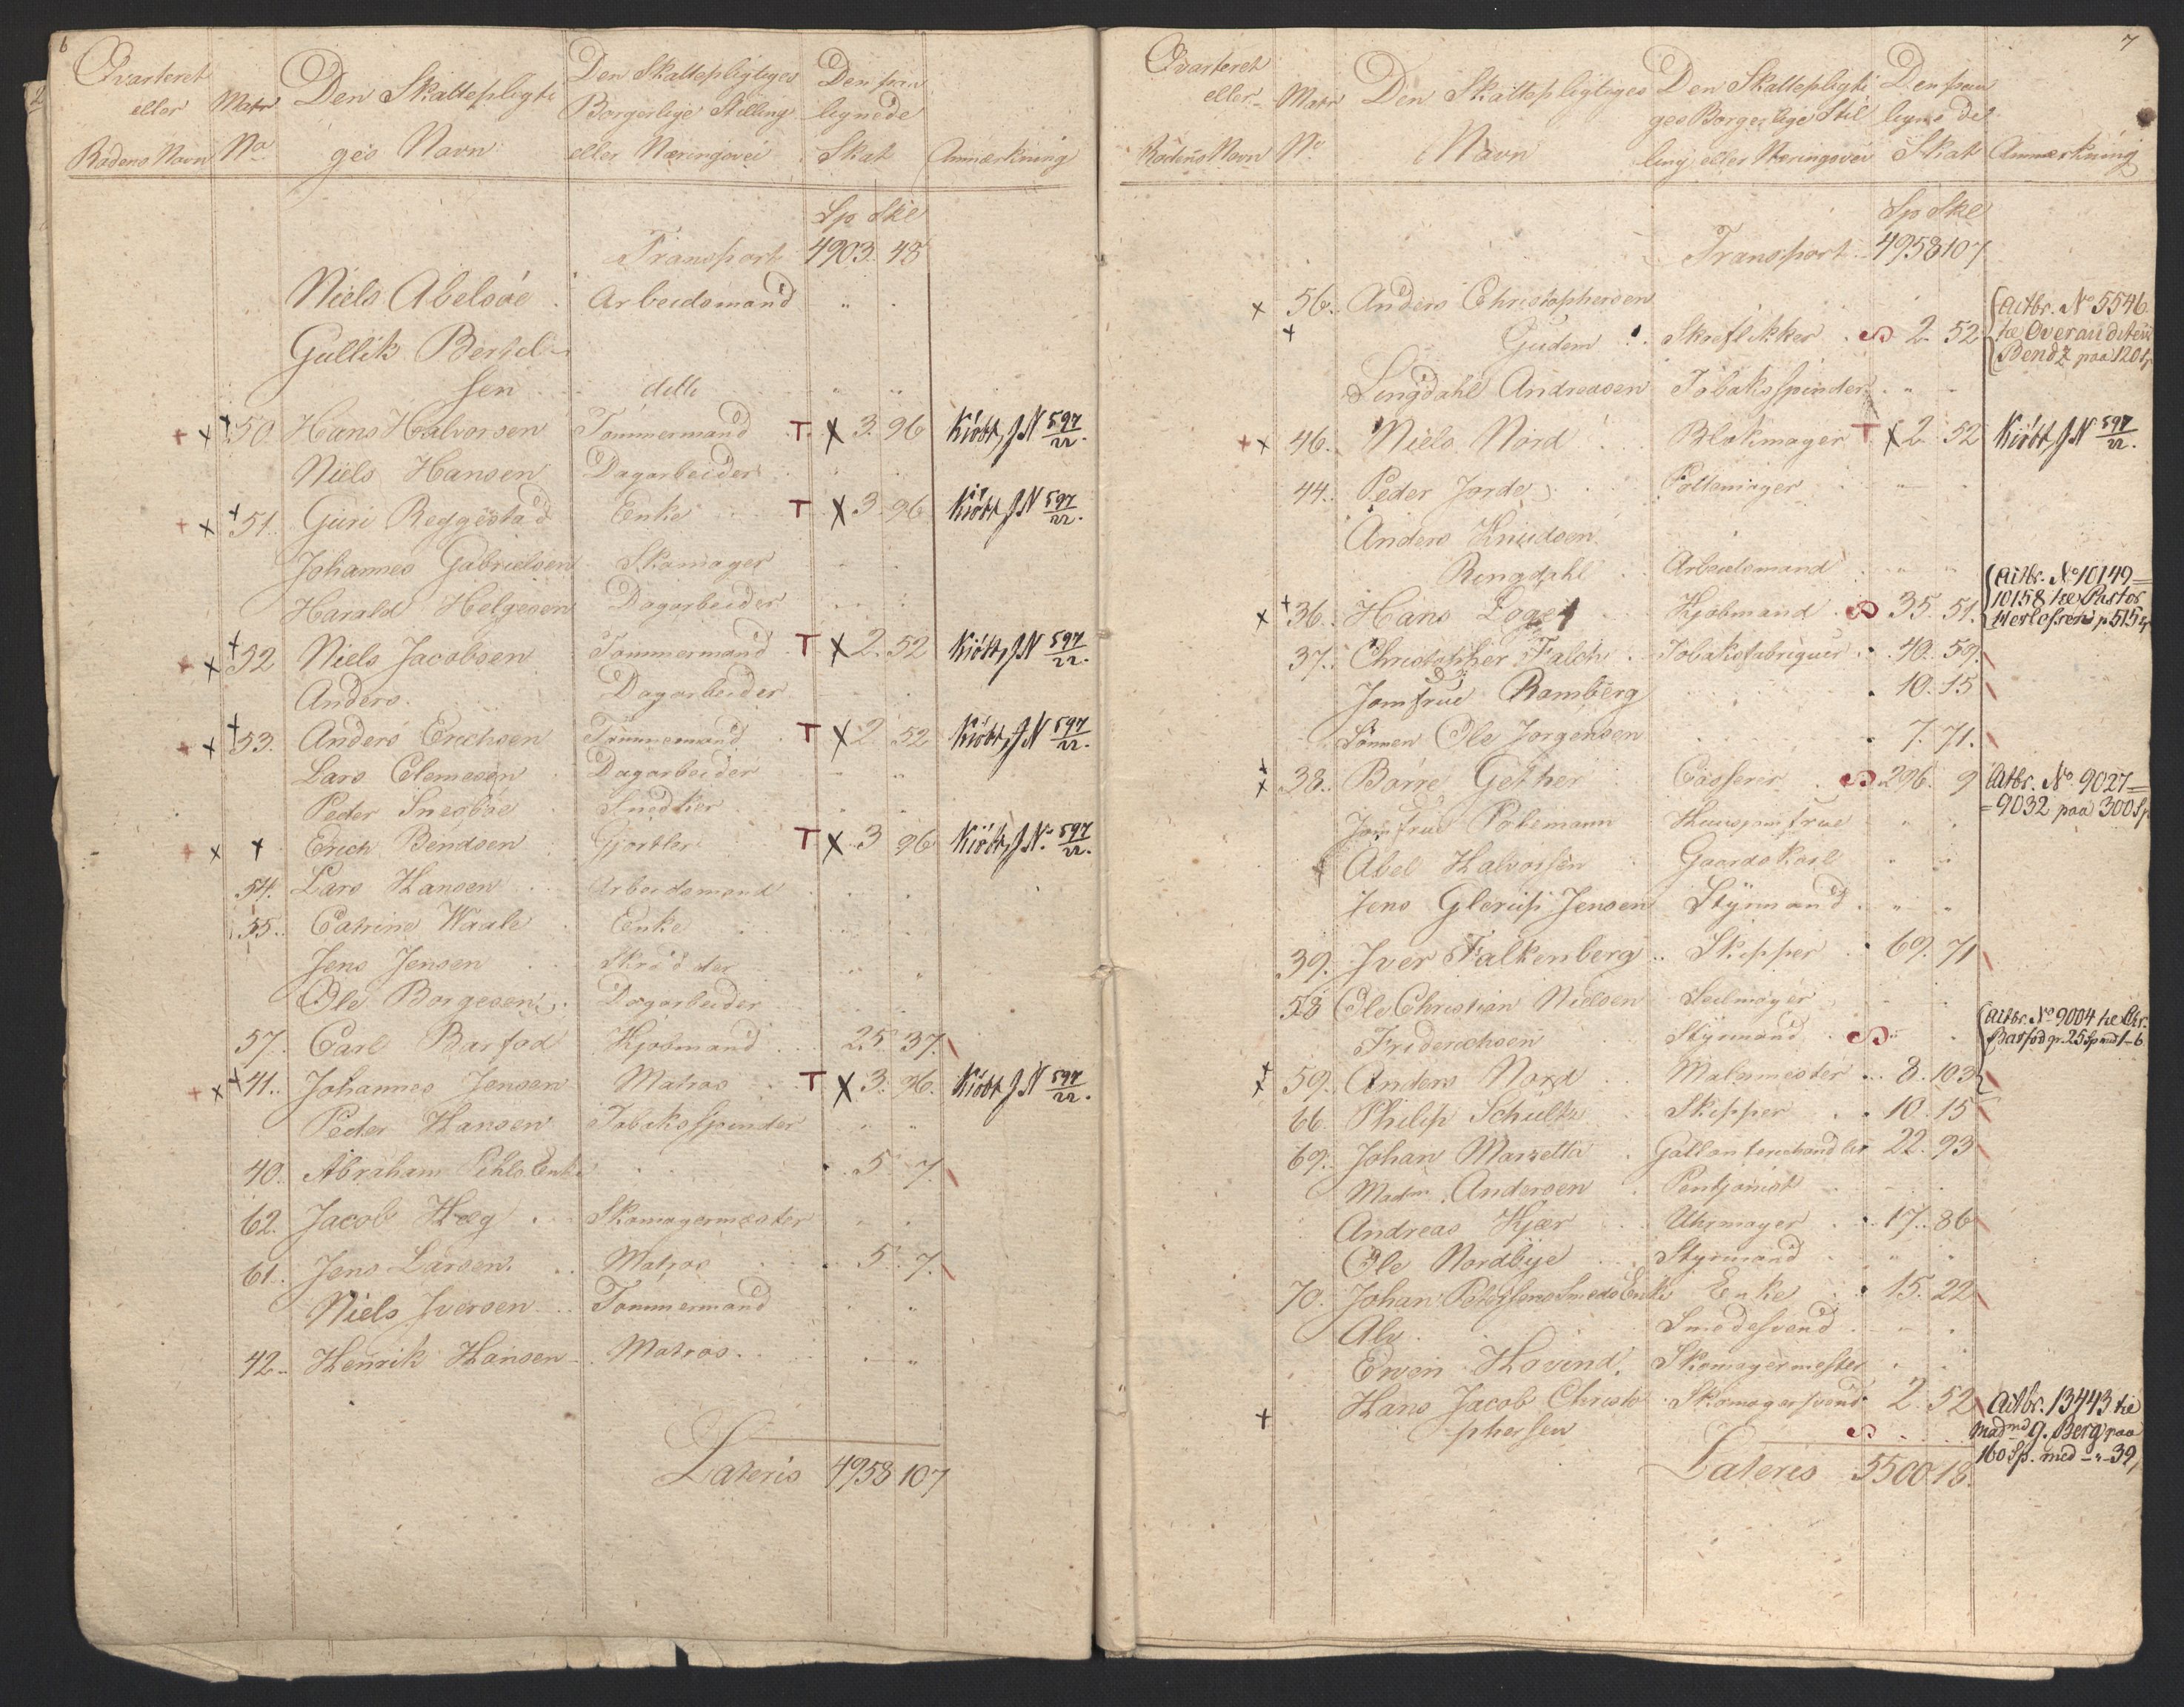 6
Qvarteret eller Radens Navn | Matr No | Den Skattepligtiges Navn | Den Skattepligtiges Borgerlige Stilling eller Næringsvei | Den paalignede Skat | Anmærkning
Sp Skl
Transport 4903. 48
Niels Abelsøe Arbeidsmand
Gullik Bertel-
sen ditto
+ x + 50 Hans Halvorsen Tømmermand T x 3. 96 Kiøbt, J N 597/22.
Niels Hansen Dagarbeider
+ x + 51. Guri Reggestad Enke T x 3. 96 Kiøbt J N 597/22.
Johannes Gabrielsen Skomager
Harald Helgesen Dagarbeider
+ x + 52 Niels Jacobsen Tømmermand T x 2. 52 Kiøbt, J N 597/22.
Anders Dagarbeider
+ x + 53. Anders Erichsen Tømmermand T x 2. 52 Kiøbt, J N 597/22.
Lars Clemesen Dagarbeider
Peder Snesbøe Snedker
+ x + Erich Bendsen Gjørtler T x 3 96 Kiøbt, J N. 597/22.
54. Lars Hansen Arbeidsmand
55. Catrine Waale Enke
Jens Jensen Skrædder
Ole Borgesen Dagarbeider
57. Carl Barfod Kjøbmand 25 37.
+ x + 41. Johannes Jensen Matros T x 3. 96. Kiøbt J N 597/22.
Peder Hansen Tobaksspinder
40. Abraham Pihls Enke 5 7.
62. Jacob Høeg Skomagermester
61. Jens Larsen. Matros 5. 7.
Niels Iversen Tømmermand
42. Henrik Hansen Matros.
Lateris 4958 107
7
Qvarteret eller Radens Navn | Matr No | Den Skattepligtiges Navn | Den Skattepligtiges Borgerlige Stilling eller Næringsvei | Den paalignede Skat | Anmærkning
Sp Skl
Transport 4958 107
x 56. Anders Christophersen
+ Gudem Skoeflikker 2. 52 Actbr. No 5546 til Overauditeur Bendz paa 120 Sp
Lengdahl Andreasen Tobaksspinder
+ x 46. Niels Nord Blokmager T x 2. 52 Kiøbt J N 597/22.
44. Peder Jorde Pottemager
Anders Knudsen
Rengdahl Arbeidsmand
x + 36. Hans Loge Kjøbmand 35. 51. Actbr. No 10149 = 10158 til Pastor Herlefsen p 515 Sp
37. Christopher Falch Tobaksfabriqueur 40. 59.
Jomfrue Ramberg 10. 15
Sønnen Ole Jorgensen 7. 71.
+ x 38. Børre Gether Casserer 296. 9 Actbr. No 9027 = 9032 paa 300 Sp
Jomfrue Polemann Huusjomfrue
Abel Halvorsen Gaardskarl
Jens Glerup Jensen Styrmand
39. Iver Falkenberg Skipper 69. 71
58 Ole Christian Nielsen Seilmager
Friderichsen Styrmand Actbr. No 9004 til Chr. Barfod p. 25 Sp med 1-6
+ x 59. Anders Nord Malermester 8. 103
66. Philip Schultz Skipper 10. 15
69. Johan Mazzetta Gallanteriehandler 22. 93
Madm. Andersen Pentjonist
Andreas Kjær Uhrmager 17. 86
Ole Nordbye Styrmand
70. Johan Peter Jens Smeds Enke Enke 15. 22
Alv. Smedesvend
Ewen Hovind. Skomagermester
Hans Jacob Christo- Skomagersvend 2. 52 Actbr. 13443 til
+ phersen Madme G. Berg paa
Lateris 5500. 18. 160 Sp. med -"- 39,